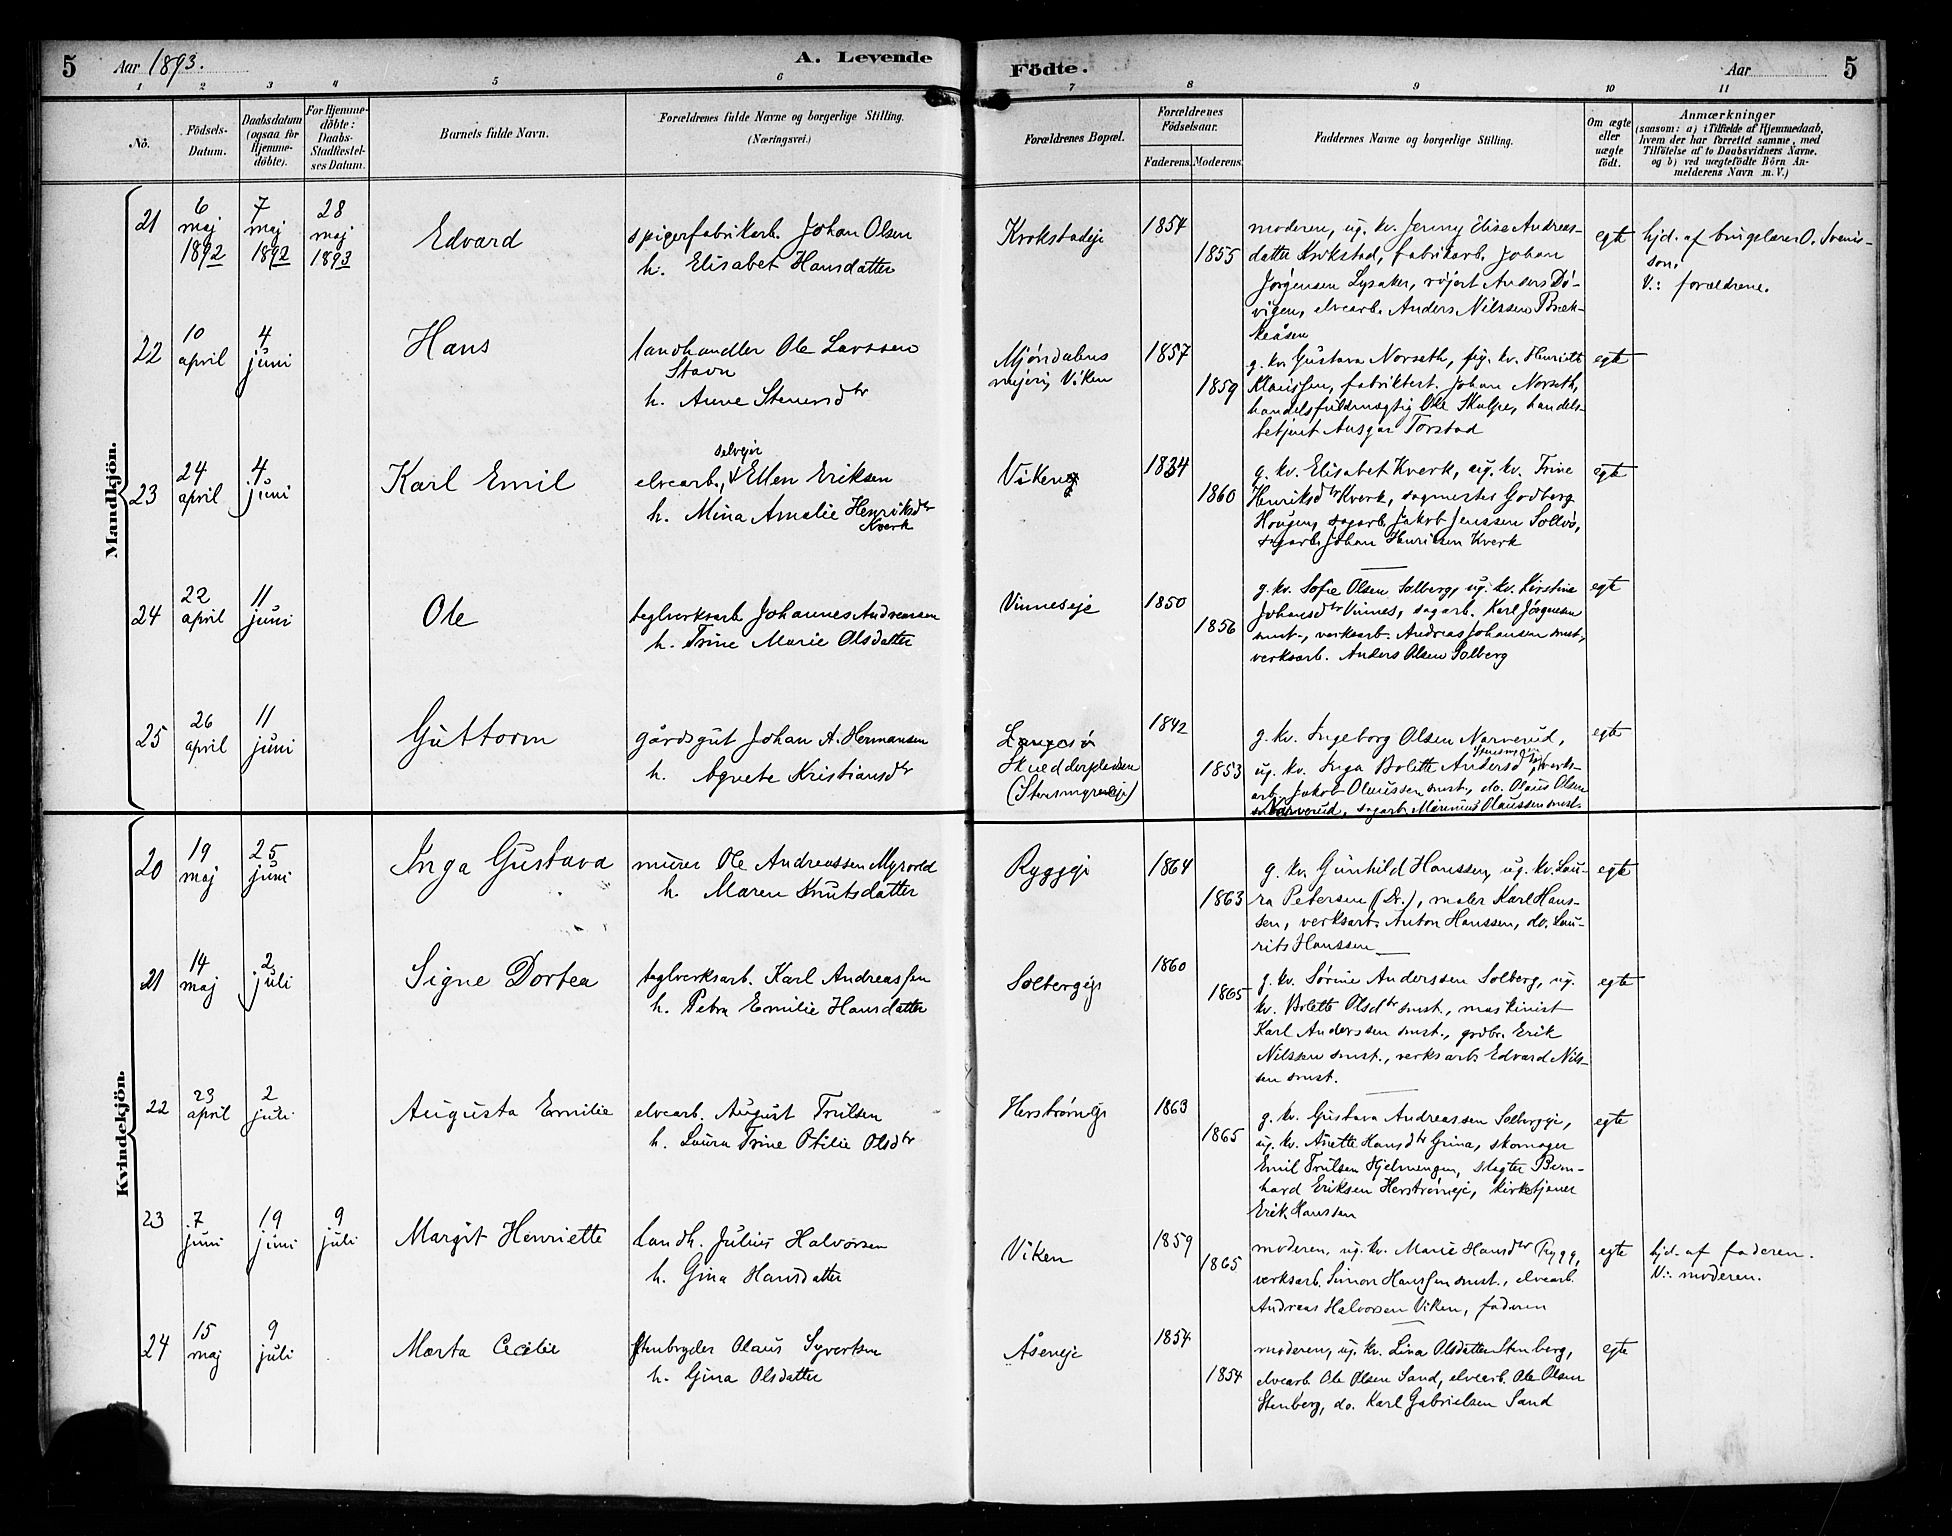 5 Aar 1893. A. Levende Födte. Aar 5
1 2 3 4 5 6 7 8 9 10 11
No.
Födsels-
Datum.
Daabsdatum
(ogsaa for
Hjemme-
döbte).
For Hjemme-
döbte:
Daabs-
Stadfæstel-
ses Datum.
Barnets fulde Navn.
Forældrenes fulde Navne og borgerlige Stilling.
(Næringsvei.)
Forældrenes Bopæl.
Forældrenes
Födselsaar.
Faderens. Moderens.
Faddernes Navne og borgerlige Stilling.
Om ægte
eller
uægte
födt.
Anmærkninger
(saasom: a) i Tilfælde af Hjemmedaab,
hvem der har forrettet samme, med
Tilföielse af to Daabsvidners Navne.
og b) ved uægtefödte Börn An-
melderens Navn m. V.)
Mandkjön.
21
6
maj
1892
7
maj
1892
28
maj
1893
Edvard
spigerfabrikarb. Johan Olsen
h. Elisabet Hansdatter
Krokstadeje
1854
1855
moderen, ug. kv. Jenny Elise Andreas-
datter Krokstad, fabrikarb. Johan
Jørgensen Lysaker, røjert Anders Dø-
vigen, elvearb. Anders Nilssen Bræk-
keåsen
egte
hjd. af brugslærer O. Svens-
son.
V.: forældrene.
22
10
april
4
juni
Hans
landhandler Ole Larssen
Stavn
h. Anne Stenersdtr
Mjøndalens
mejeri, Viken
1857
1859
g. kv. Gustava Norseth, pig. kv. Henriette
Klaussen, fabriktert. Johan Norseth,
handelsfuldmægtig Ole Skulpe, handels-
betjent Ansgar Torstad
egte
23
24
april
4
juni
Karl Emil
selvejer
elvearb., Ellen Eriksen
h. Mina Amalie Henriksdtr
Kverk
Vikeneje
1834
1860
g. kv. Elisabet Kverk, ug. kv. Trine
Henriksdtr Kverk, sagmester Godberg
Hougen, sagarb. Jakob Jenssen Sollø,
sagarb. Johan Henriksen Kverk
egte
24
22
april
11
juni
Ole
teglverksarb. Johannes Andreassen
h. Trine Marie Olsdatter
Vinneseje
1850
1856
g. kv. Sofie Olsen Solberg, ug. kv. Kirstine
Johansdtr Vinnes, sagarb. Karl Jørgensen
smst., verksarb. Andreas Johansen smst.,
verksarb. Anders Olsen Solberg
egte
25
26
april
11
juni
Guttorm
gårdsgut Johan A. Hermansen
h. Agnete Kristiansdtr
Langesø
Skredderpladsen
1842
1853
g. kv. Ingeborg Olsen Narverud,
ug. kv. Inga Bolette Andersdtr, verks-
arb. Jakob Olaussen smst., do. Olaus Olsen
Narverud, sagarb. Marinius Olaussen smst.
egte
Kvindekjön.
20
19
maj
25
juni
Inga Gustava
murer Ole Andreassen Myrvold
h. Maren Knutsdatter
Ryggeje
1864
1863
g. kv. Gunhild Hanssen, ug. kv. Lau-
ra Petersen (Dr.), maler Karl Hans-
sen, verksarb. Anton Hanssen, do. Lau-
rits Hanssen
egte
21
14
maj
2
juli
Signe Dortea
teglverksarb. Karl Andreassen
h. Petra Emilie Hansdatter
Solbergeje
1860
1865
g. kv. Sørine Anderssen Solberg, ug.
kv. Bolette Olsdtr smst., maskinist
Karl Anderssen smst., grdbr. Erik
Nilssen smst., verksarb. Edvard Nils-
sen smst.
egte
22
23
april
2
juli
Augusta Emilie
elvearb. August Trulsen
h. Laura Trine Otilie Olsdtr
Herstrømeje
1863
1865
g. kv. Gustava Andreassen Solbergeje,
ug. kv. Anette Hansdtr Grina, skomager
Emil Trulsen Hjelmengen, slagter Bern-
hard Eriksen Herstrømeje, kirketjener
Erik Hanssen
egte
23
7
juni
19
juni
9
juli
Margit Henriette
landh. Julius Halvorsen
h. Gina Hansdatter
Viken
1859
1865
moderen, ug. kv. Marie Hansdtr Rygg,
verksarb. Simon Hanssen smst., elvearb.
Andreas Halvorsen Viken, faderen
egte
hjd. af faderen.
V.: moderen.
24
15
maj
9
juli
Marta Cecilie
Stenbryder Olaus Syvertsen
h. Gina Olsdatter
Åseneje
1854
1854
moderen, ug. kv. Lina Olsdatter Stenberg,
elvearb. Ole Olsen Sand, elvearb. Ole Olsen
Stenberg, do. Karl Gabrielsen Sand
egte